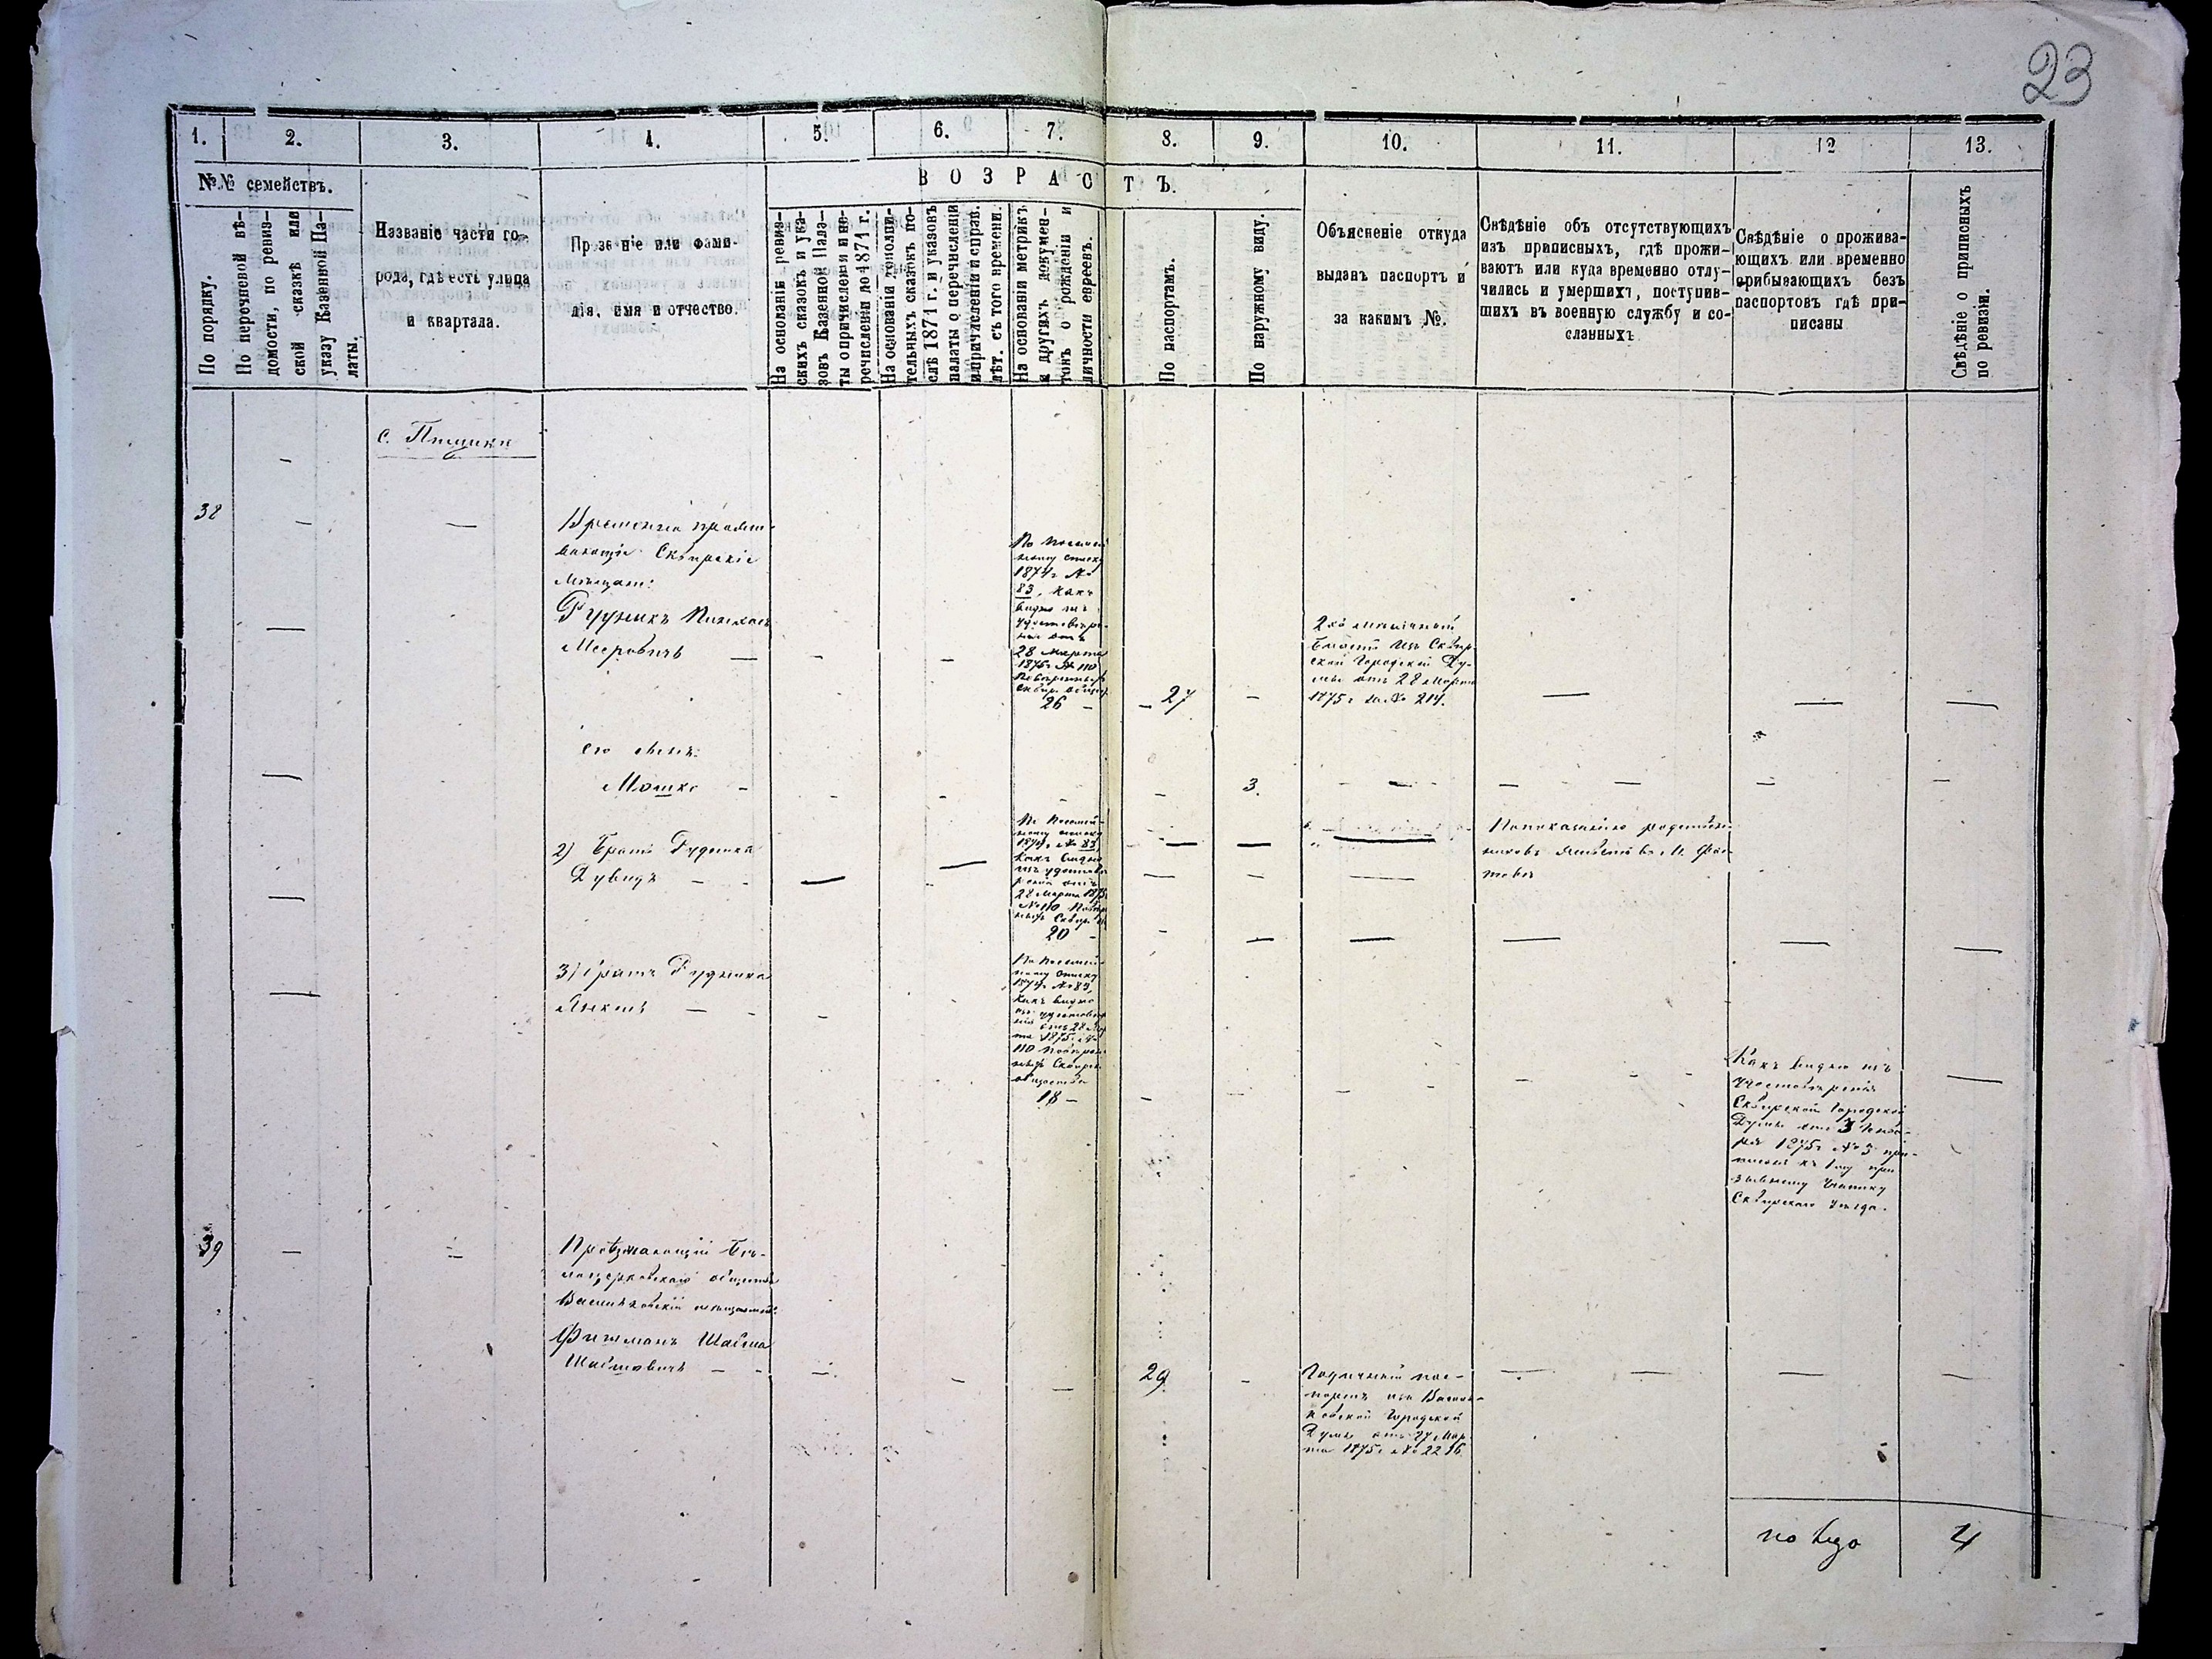 23
1. 2. 3. 4. 5. 6. 7. 8. 9. 10. 11. 12 13.
№№ семействъ.
ВОЗРАСТЪ.
По порядку.
По перечневой вѣ-
домости, по ревиз-
ской сказкѣ или
указу Казенной Па-
латы.
Названіе части го-
рода, гдѣ есть улица
и квартала.
Пр зв ніе или фами-
лія, имя и отчество.
На основаніи ревиз-
скихъ сказокъ и ука-
зовъ Казенной Пала-
ты о причисленіи и пе-
речисленіи до 1871 г.
На основаніи дополни-
тельныхъ сказокъ по-
слѣ 1871 г. и указовъ
палаты о перечисленіи
и причисленіи и справ.
лѣт. съ того времени.
На основаніи метрикъ
и другихъ докумен-
товъ о рожденіи и
личности евреевъ.
По паспортамъ.
По наружному виду.
Объясненіе откуда
выданъ паспортъ и
за какимъ №.
Свѣдѣніе объ отсутствующихъ
изъ приписныхъ, гдѣ прожи-
ваютъ или куда временно отлу-
чились и умершихъ, поступив-
шихъ въ военную службу и со-
сланныхъ
Свѣдѣніе о прожива-
ющихъ или временно
прибывающихъ безъ
паспортовъ гдѣ при-
писаны
Свѣдѣніе о приписныхъ
по ревизіи.
с. Пищики
38
Временно прожи-
вающіе Сквирскіе
мѣщане:
Рудникъ Пинхасъ
Мееровичъ
По посемей-
ному списку
1874 г №
83, какъ
видно изъ
удостовѣре-
нія отъ
28 марта
1875 г № 110
Сквир. общес
26
27
2хъ мѣсячный
билетъ изъ Сквир-
ской Городской Ду-
мы отъ 28 Марта
1875 г за № 214.
его сынъ:
Мошко
3.
2) братъ Рудника
Дувидъ
По посемей-
ному списку
1874 г. № 83,
какъ видно
изъ удостовѣ-
ренія отъ
28 Марта 1875
№ 110
Сквир.
20
По показанію родствен-
никовъ живетъ въ М. Фас-
товѣ
3) братъ Рудника
Янкель
По посемей-
ному списку
1874 г. № 83,
какъ видно
изъ удостовѣр
нія отъ 28 Мар
та 1875 г. №
110
Сквирс
общества
18
Какъ видно изъ
удостовѣренія
Сквирской Городской
Думы отъ 3 Янва-
ря 1875 г № 5 при-
писанъ къ 1му при
зывному участку
Сквирскаго уѣзда.
39
Проѣзжающій Бѣ-
лоцерковскаго общества
Васильковскій мѣщанинъ:
Фишманъ Шабша
Шабшовичъ
29
Годичный пас-
портъ изъ Василь-
ковской Городской
Думы отъ 27 Мар-
та 1875 г № 2216
по виду 4